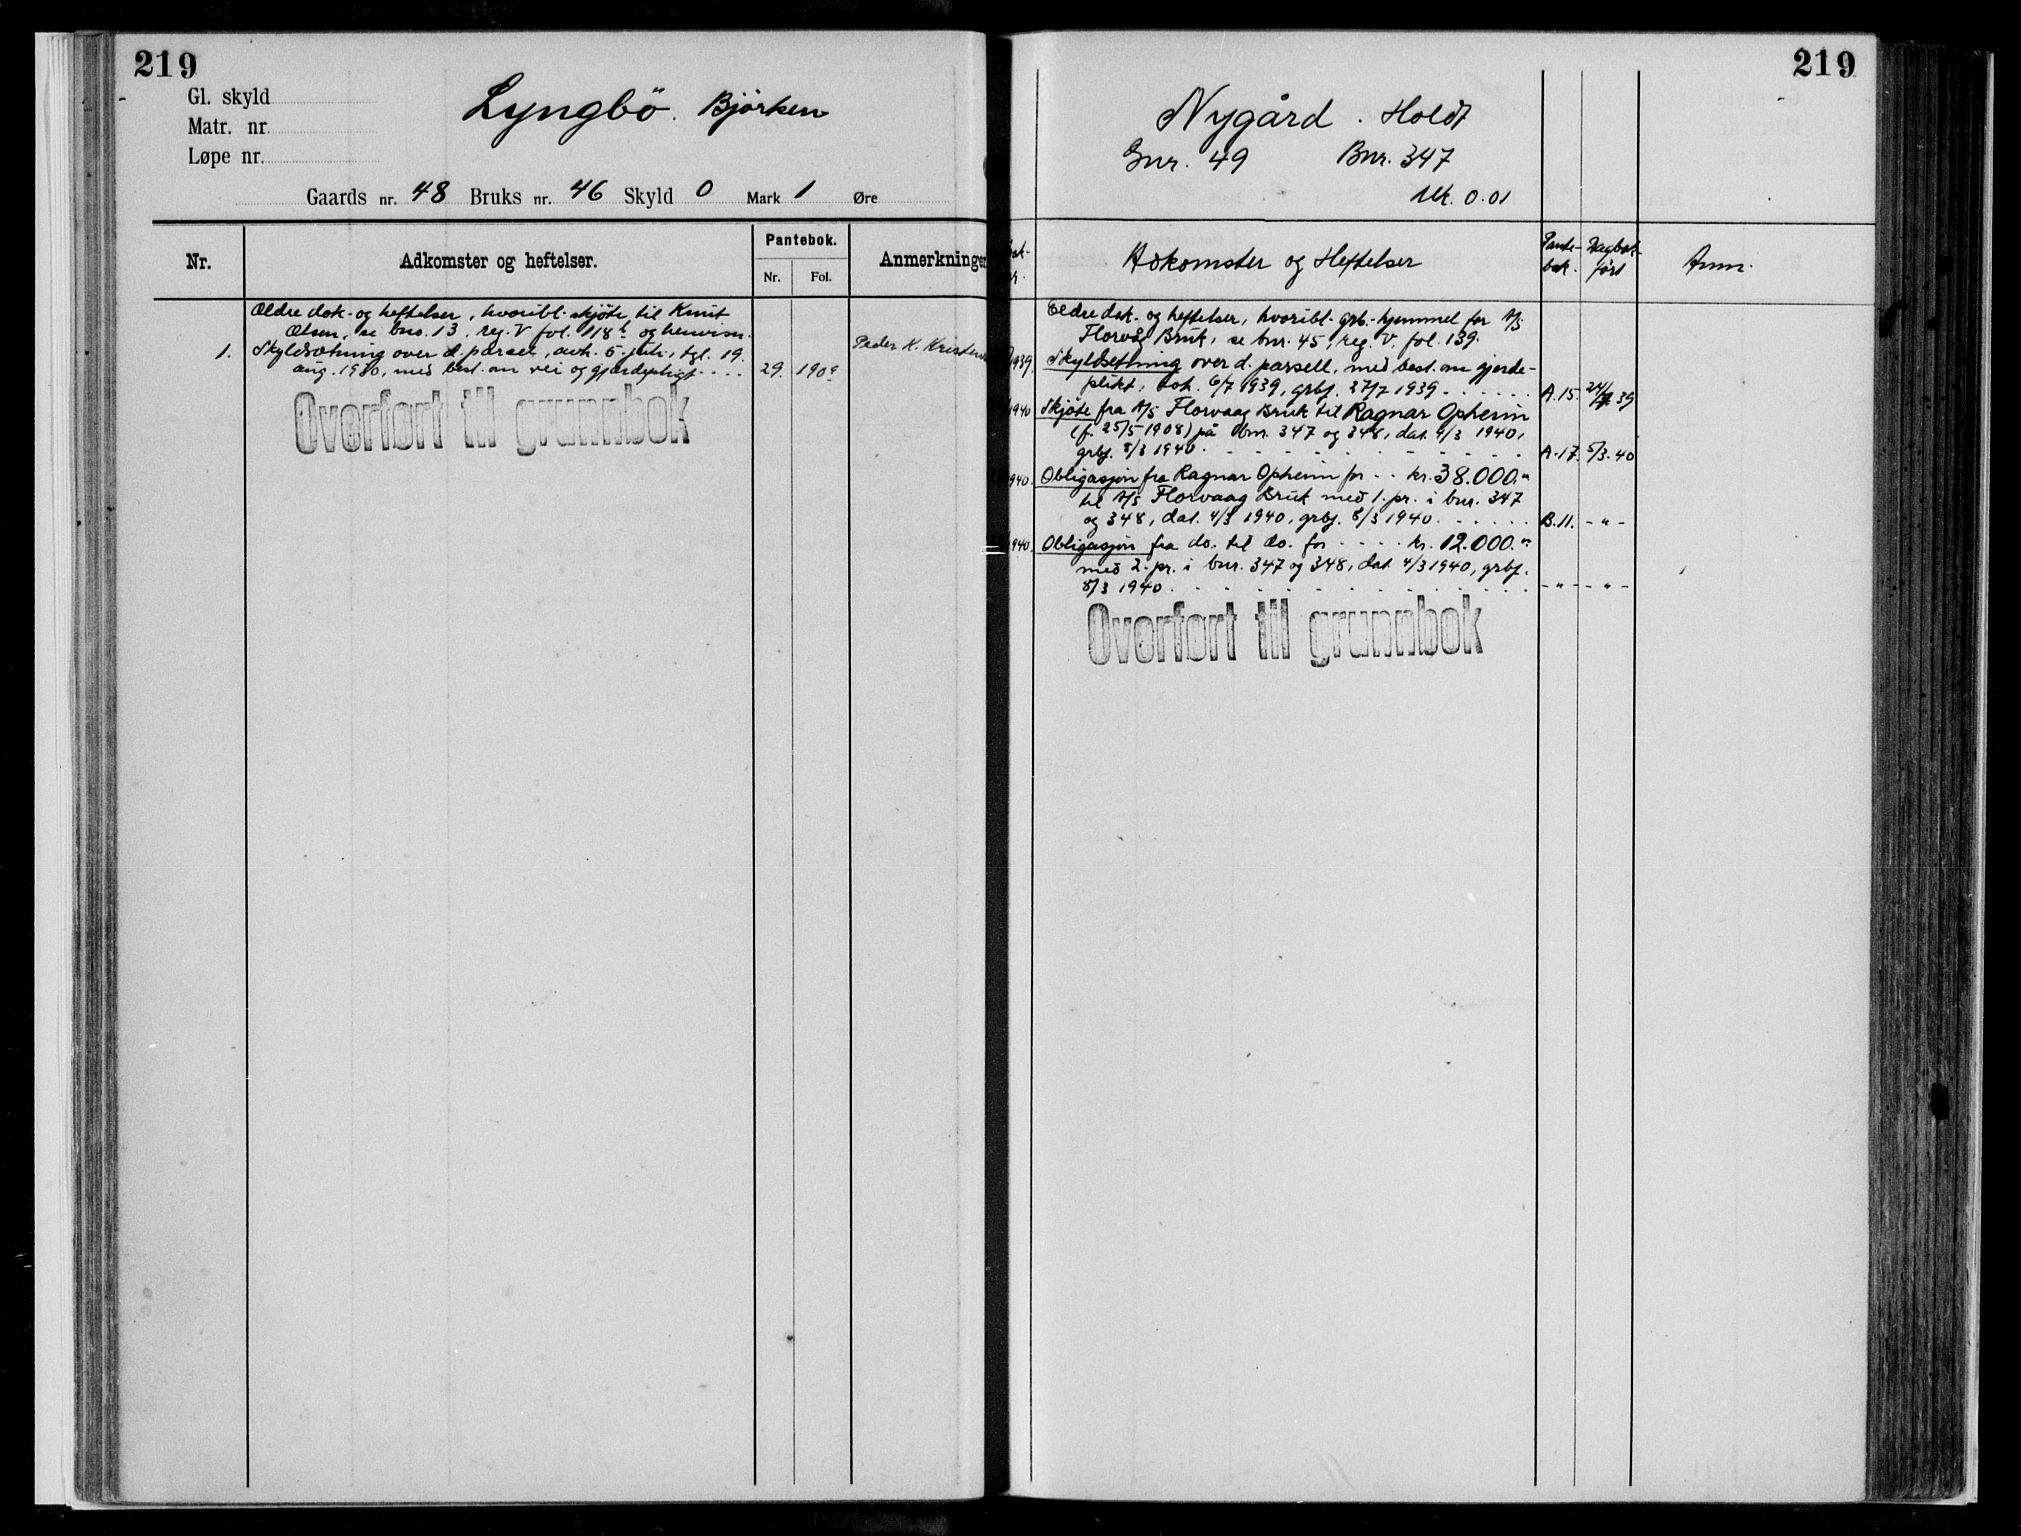 219
Gl. skyld
Matr. nr.
Løpe nr.
Lyngbö. Björken
Gaards nr. 48 Bruks nr. 46 Skyld 0 Mark 1 Øre
Nr.
Adkomster og heftelser.
Pantebok.
Nr. Fol.
Anmerkninger
Ældre dok- og heftelser, hvoribl. skjöte til Knut
Olsen, se bno. 13, reg. V fol. 118 og henvisn.
1. Skyldsætning over d. parsel, avh. 5. juli, tgl. 19.
aug. 1920, med best. om vei og gjerdepligt .... 29. 190
Peder K. Kristens
Overført til grunnbok
219
Nygård. Holdt
Gnr. 49 Bnr. 347
Mk. 0.01
Adkomster og Heftelser
Pante-bok. Dagbok-ført
Anm.
Eldre dok- og heftelser, hvoribl. grb.-hjemmel for A/S
Florvåg Bruk, se bnr. 45, reg. V, fol. 139.
1939 Skyldsetning over d. parsell, med best. om gjerde-
plikt, dok. 6/7 1939, grbf. 27/7 1939 ...... A.15. 24/7 39
1940 Skjöte fra A/S Florvaag Bruk til Ragnar Opheim
(f. 25/5 1908) på bnr. 347 og 348, dat. 4/3 1940,
grbf. 8/3 1940. A.17. 5/3.40
1940. Obligasjon fra Ragnar Opheim for .. kr. 38.000.-
til A/S Florvaag Bruk med 1. pr. i bnr. 347
og 348, dat. 4/3 1940, grbf. 8/3 1940. ..... B.11. -"-
1940. Obligasjon fra do. til do. for .... kr. 12.000.-
med 2. pr. i bnr. 347 og 348, dat. 4/3 1940, grbf.
8/3 1940. -"- -"-
Overført til grunnbok